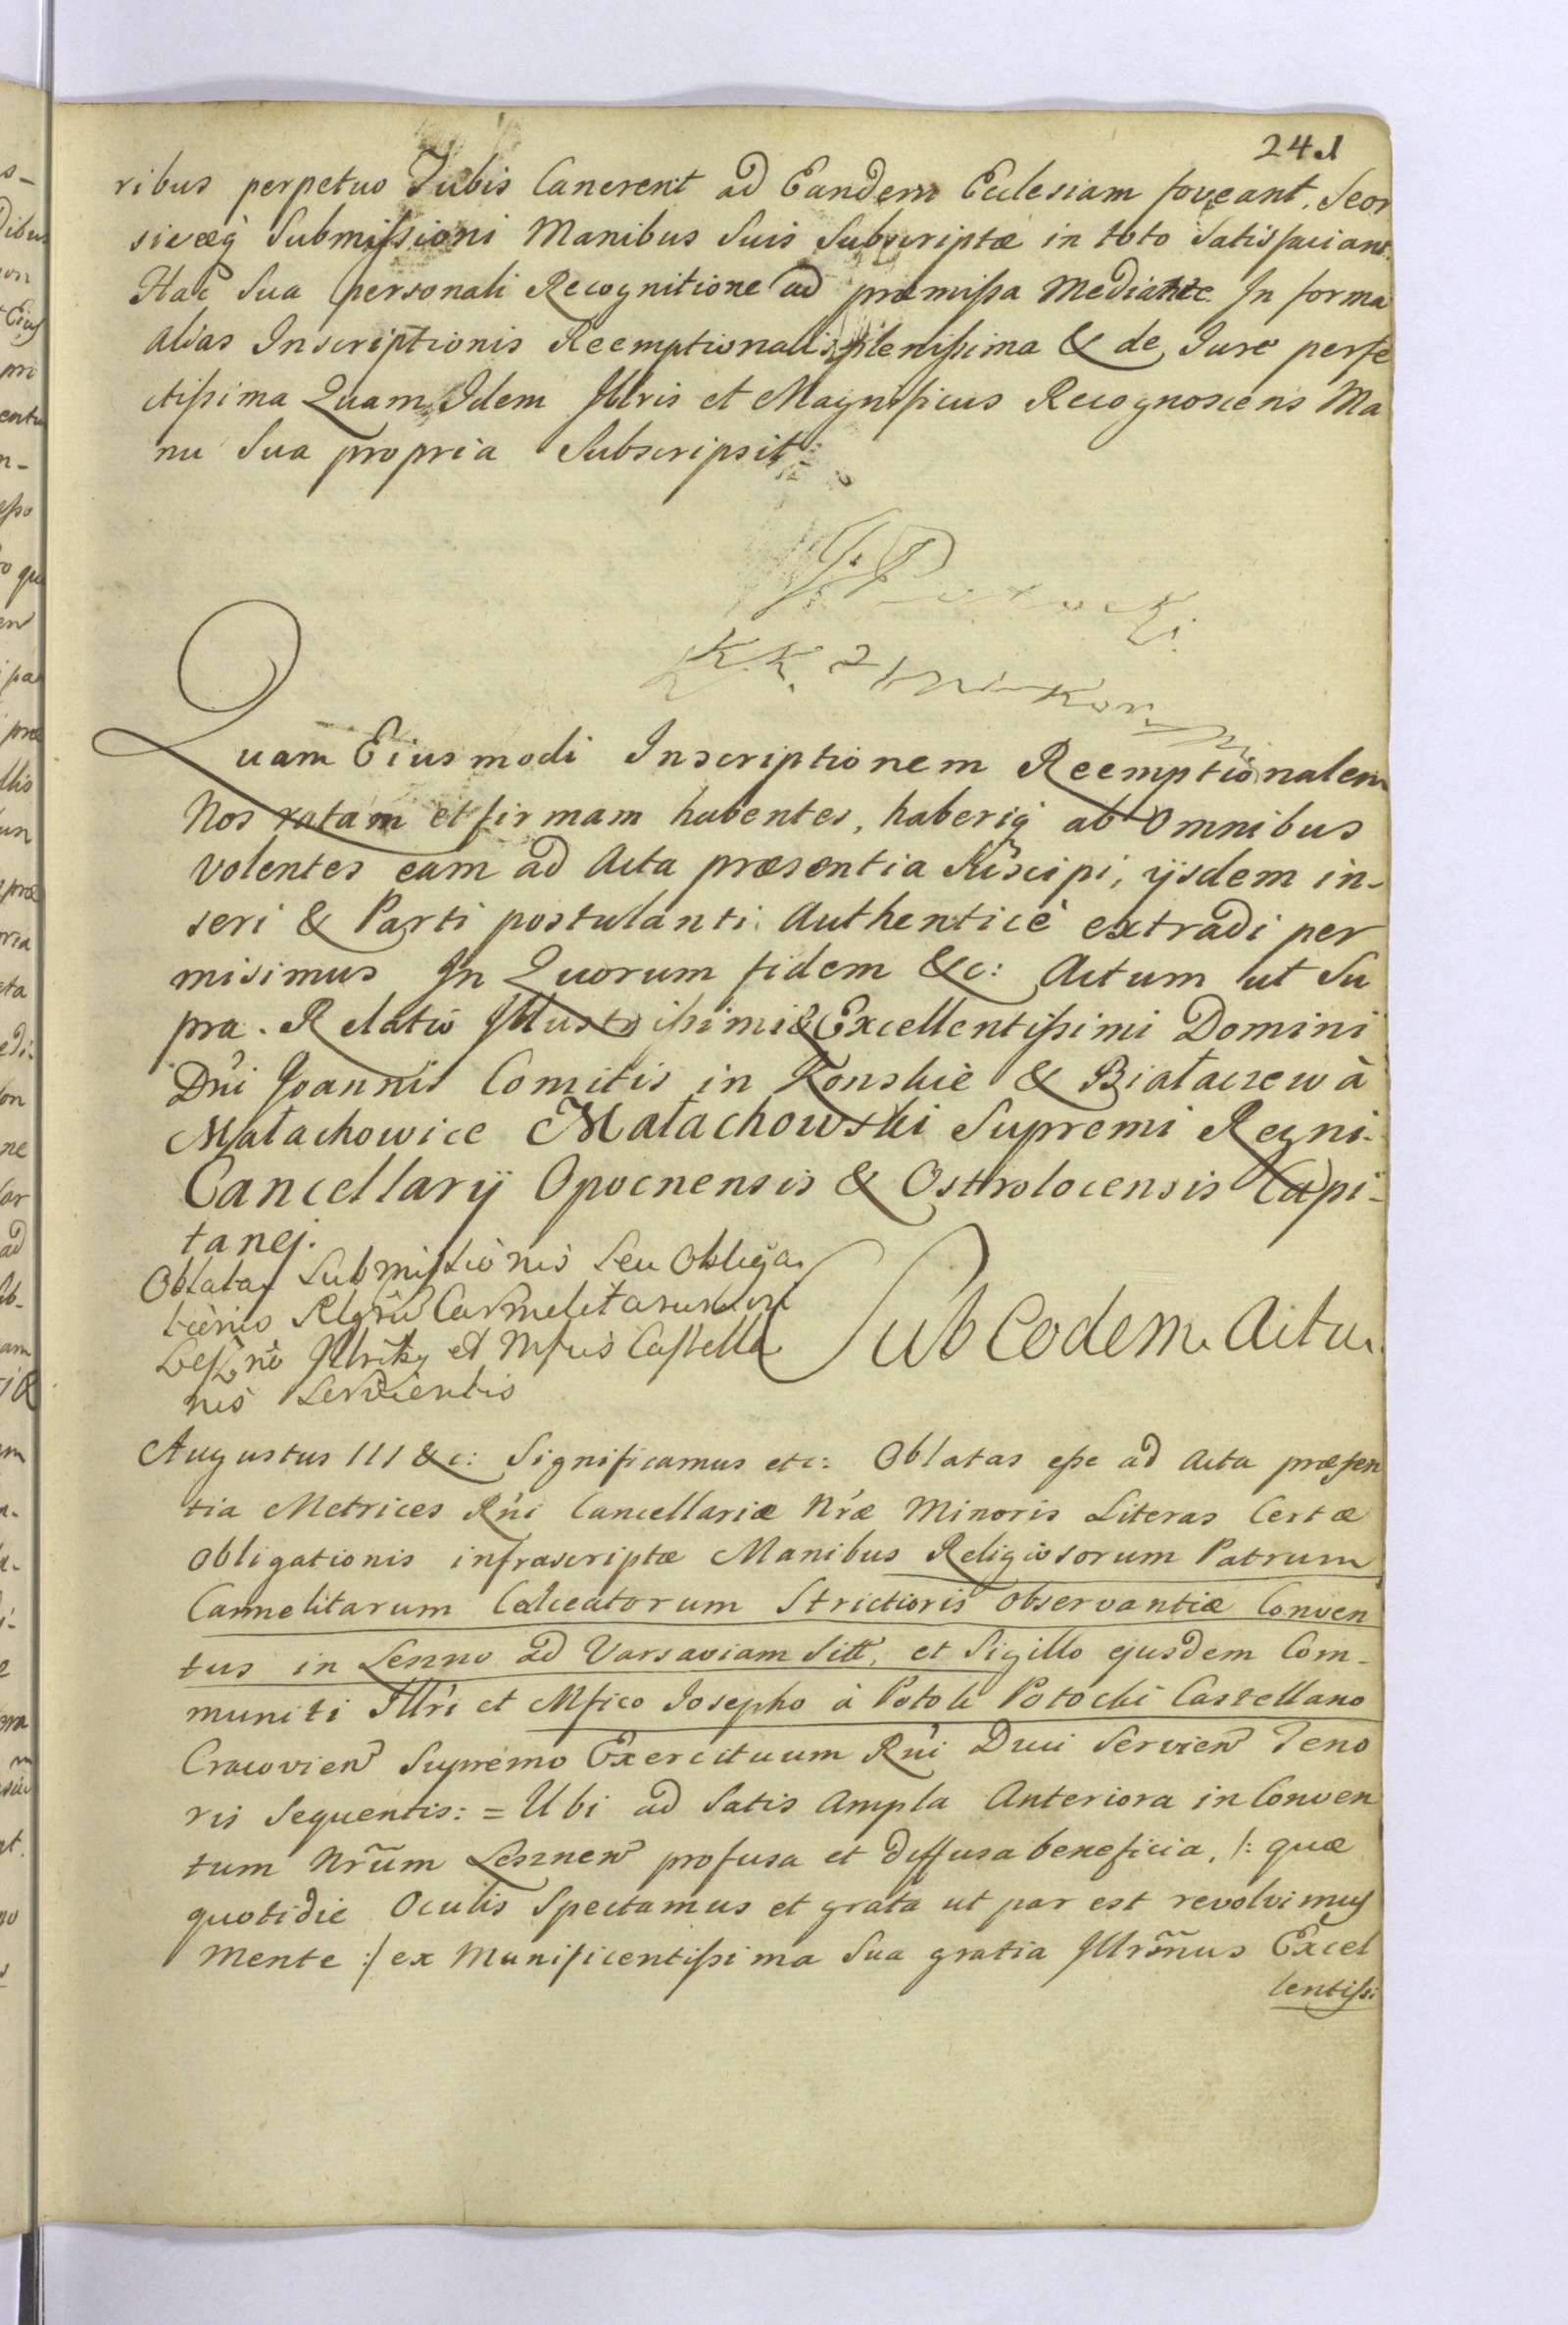 241
ribus perpetuo Tubis Canerent ad Eandem Ecclesiam foveant, Seor
sivæq Submissioni Manibus Suis Subscriptæ in toto Satisfaciant.
Hac Sua personali Recognitione ad præmissa Mediante In forma
alias Inscriptionis Reemptionalis plenissima & de Jure perfe
ctissima Quam Idem Illris et Magnificus Recognoscens Ma
nu Sua propria Subscripsit
J. Potocki
K. K.
Quam Eiusmodi Inscriptionem Reemptionalem
Nos ratam et firmam habentes, haberiq ab Omnibus
Volentes eam ad Acta præsentia Suscipi, ijsdem in-
seri & Parti postulanti Authenticè extradi per
misimus In Quorum fidem &c: Actum ut Su
pra. Relatio Illustrissimi & Excellentissimi Domini
Dni Joannis Comitis in Konskie & Białaczew à
Małachowice Małachowski Supremi Regni
Cancellarij Opocnensis & Ostrolocensis Capi-
tanej.
Oblata Submissionis Seu Obliga
tionis Relgrũ Carmelitarum in
Leszno Illri et Mfcis Castella
nis Servientis
Sub Eodem Actu
Augustus III &c: Significamus etc: Oblatas esse ad Acta præsen
tia Metrices Rni Cancellariæ Nræ Minoris Literas Certæ
Obligationis infrascriptæ Manibus Religiosorum Patrum
Carmelitarum Calceatorum Strictioris Observantiæ Conven
tus in Leszno ad Varsaviam Sitt, et Sigillo ejusdem Com-
muniti Illri et Mfico Josepho à Potok Potocki Castellano
Cracovien Supremo Exercituum Rni Duci Servien Teno
ris Sequentis: = Ubi ad Satis Ampla Anteriora in Conven
tum Nrũm Lesznen profusa et diffusa beneficia, /: quæ
quotidie Oculis Spectamus et grata ut par est revolvimus
Mente :/ ex Munificentissima Sua gratia Illrsm̃us Excel
lentissi